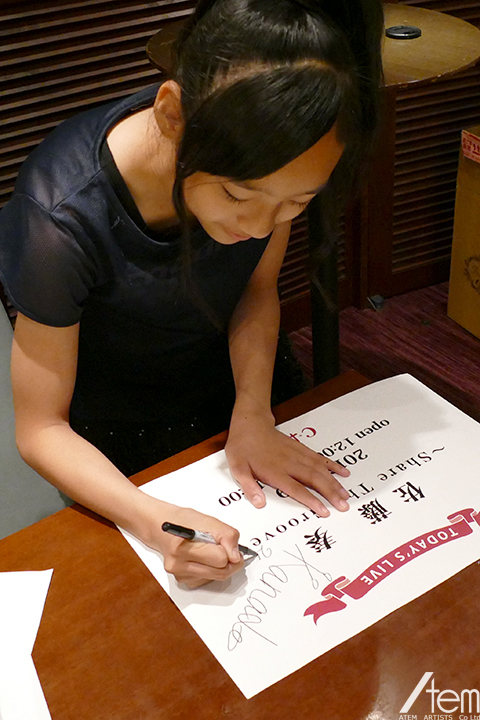 TODAY'S LIVE
佐藤 奏
~Share Th roove
201
open 12:00 :00
C-
Kanade
Atem
ATEM ARTISTS Co Ltd